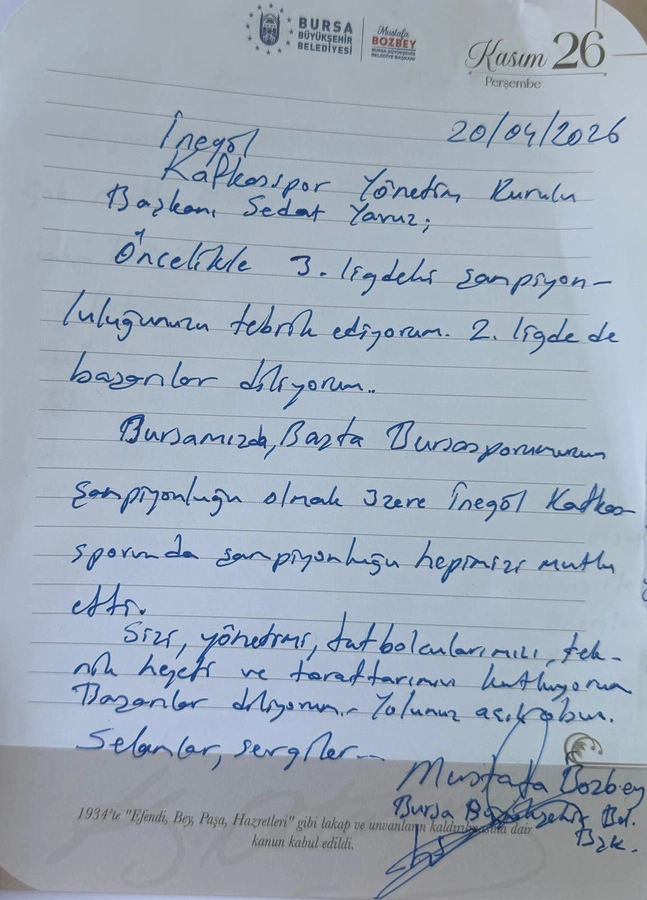 BURSA
BÜYÜKŞEHİR
BELEDİYESİ
Mustafa
BOZBEY
BURSA BÜYÜKŞEHİR
BELEDİYE BAŞKANI
Kasım 26
Perşembe
20/04/2026
İnegöl
Kafkasspor Yönetim Kurulu
Başkanı Sedat Yavuz;
Öncelikle 3. ligdeki şampiyon-
luluğunuzu tebrik ediyorum. 2. ligde de
başarılar diliyorum..
Bursamızda, Başta Bursasporumuzun
şampiyonluğu olmak üzere İnegöl Kafkas-
sporunda şampiyonluğu hepimizi mutlu
etti.
Sizi, yönetimi, futbolcularımızı, tek-
nik heyeti ve taraftarımızı kutluyorum
Başarılar diliyorum.- Yolunuz açık olsun.
Selamlar, sevgiler...
Mustafa Bozbey
Bursa Büyükşehir Bel.
Bşk.
1934'te "Efendi, Bey, Paşa, Hazretleri" gibi lakap ve unvanların kaldırılmasına dair
kanun kabul edildi.